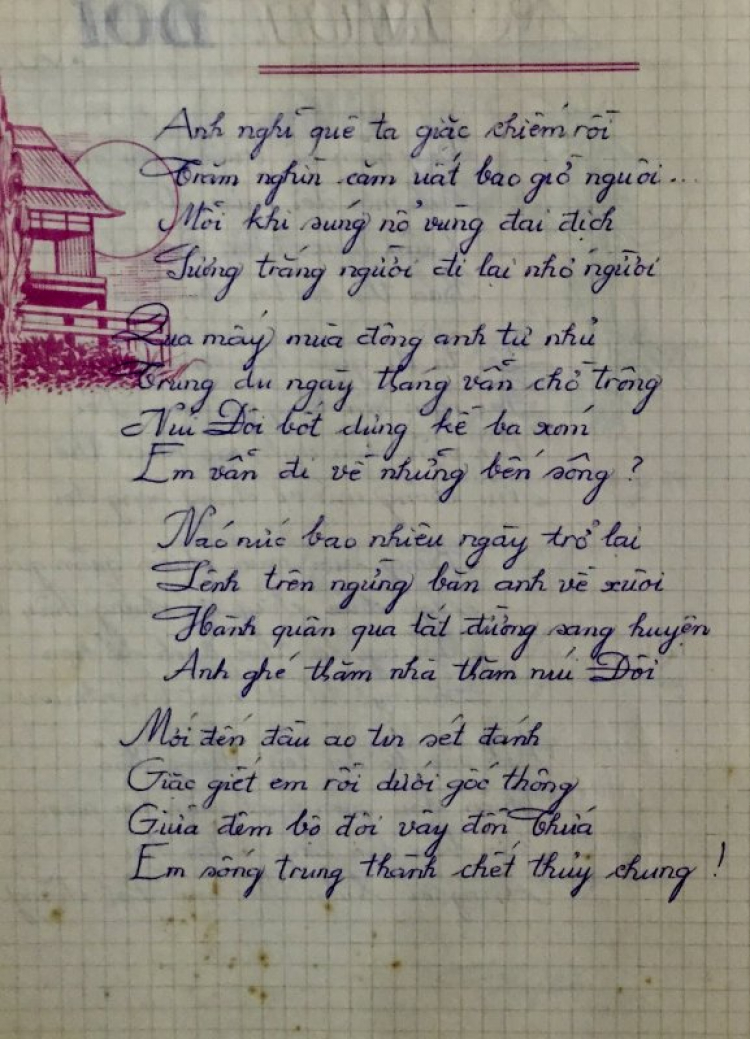 Anh nghĩ quê ta giặc chiếm rồi
Trăm nghìn căm uất bao giờ nguôi...
Mỗi khi súng nổ vùng đai địch
Sương trắng người đi lại nhớ người
Qua mấy mùa đông anh tự nhủ
Trung du ngày tháng vẫn chờ trông
Núi Đôi bốt dựng kề ba xóm
Em vẫn đi về những bến sông ?
Náo nức bao nhiêu ngày trở lại
Lệnh trên ngừng bắn anh về xuôi
Hành quân qua tắt đường sang huyện
Anh ghé thăm nhà thăm núi Đôi
Mới đến đầu ao tin sét đánh
Giặc giết em rồi dưới gốc thông
Giữa đêm bộ đội vây đồn Thừa
Em sống trung thành chết thủy chung !